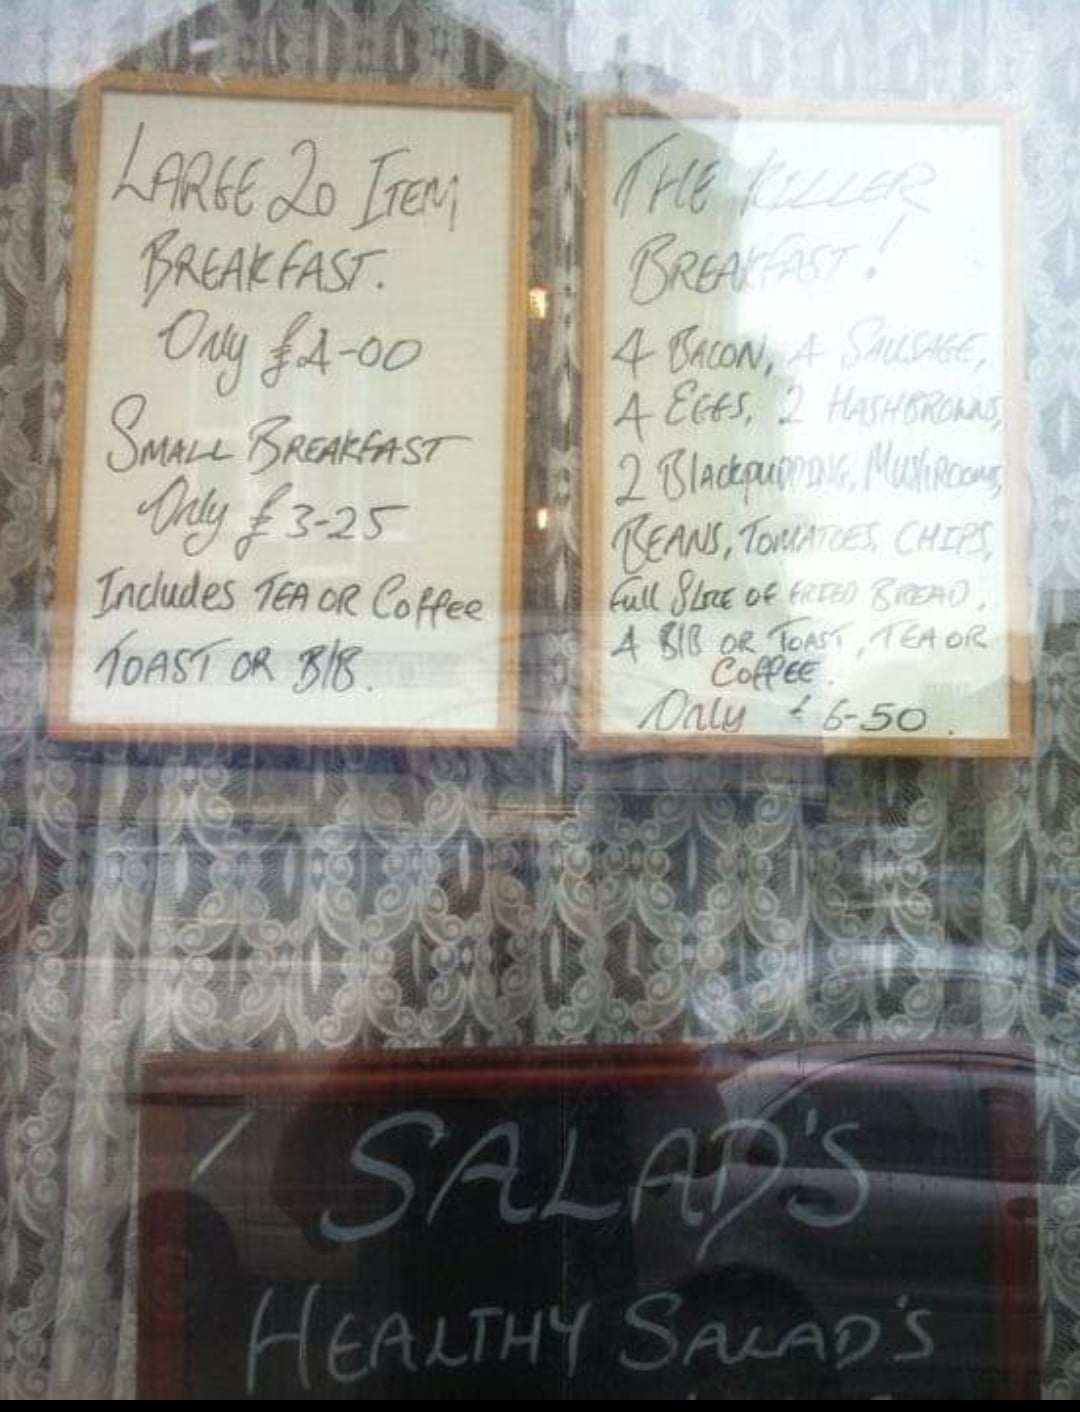 LARGE 20 ITEM
BREAKFAST.
Only £4-00
SMALL BREAKFAST
Only £3-25
Includes TEA OR Coffee
TOAST OR B/B.
THE KILLER
BREAKFAST!
4 BACON, 4 SAUSAGE,
4 EGGS, 2 HASHBROWNS,
2 BlackPUDDING, MUSHROOMS,
BEANS, TOMATOES, CHIPS,
Full SLICE OF FRIED BREAD,
4 B/B OR TOAST, TEA OR
COFFEE.
Only £6-50.
SALAD'S
HEALTHY SALAD'S